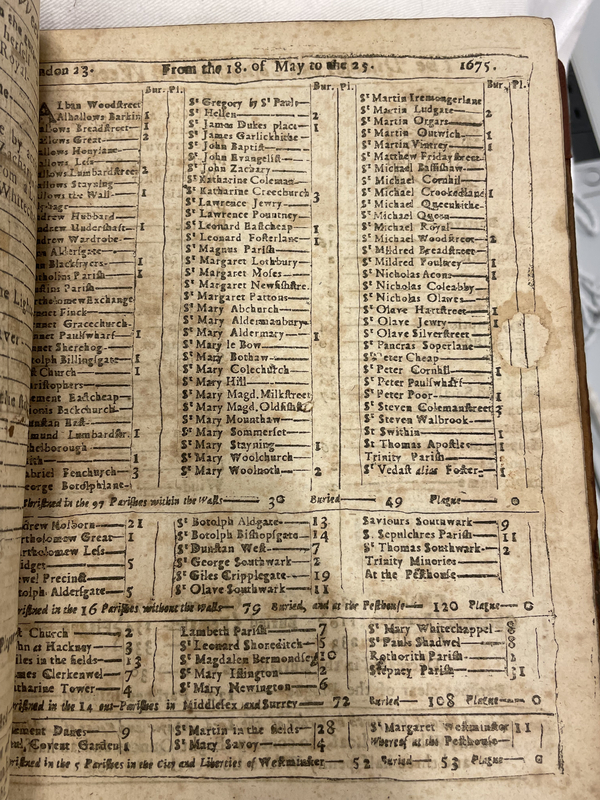 ndon 23. From the 18. of May to the 25. 1675.
Bur. Pl. Bur. Pl. Bur. Pl.
Lban Woodstreet
Alhallows Barkin 1
llows Breadstreet 1
allows Great 2
allows Honylane
allows Less
allows Lumbardstreet 2
allows Stayning
allows the Wall 1
ndrew Hubbard
ndrew Undershaft 1
drew Wardrobe
Aldersgate
Blackfryers 1
tholins Parish 1
stins Parish
rtholomewExchange
net Finck
nnet Gracechurch
nnet Paulswharf 1
nnet Sherehog
otolph Billingsgate 1
t Church 1
ristophers
ement Eastcheap
ionis Backchurch
unstan East
mund Lumbardstr. 1
thelborough
ith 1
abriel Fenchurch 3
eorge Botolphlane
St Gregory by St Pauls
St Hellen 2
St James Dukes place 1
St James Garlickhithe
St John Baptist
St John Evangelist
St John Zachary
St Katharine Coleman
St Katharine Creechurch 3
St Lawrence Jewry
St Lawrence Pountney
St Leonard Eastcheap 1
St Leonard Fosterlane 1
St Magnus Parish
St Margaret Lothbury
St Margaret Moses
St Margaret Newfishstre.
St Margaret Pattons
St Mary Abchurch
St Mary Aldermanbury
St Mary Aldermary 1
St Mary le Bow
St Mary Bothaw
St Mary Colechurch
St Mary Hill
St Mary Magd. Milkstreet
St Mary Magd. Oldfishst
St Mary Mounthaw
St Mary Sommerset
St Mary Stayning 1
St Mary Woolchurch
St Mary Woolnoth 2
St Martin Iremongerlane
St Martin Ludgate 2
St Martin Orgars
St Martin Outwich 1
St Martin Vintrey 1
St Matthew Fridaystreet
St Michael Bassishaw
St Michael Cornhil
St Michael Crookedlane 1
St Michael Queenhithe
St Michael Queon
St Michael Royal
St Michael Woodstreet 2
St Mildred Breadstreet
St Mildred Poultrey 1
St Nicholas Acons 1
St Nicholas Coleabby
St Nicholas Olawes
St Olave Hartstreet 1
St Olave Jewry 1
St Olave Silverstreet
St Pancras Soperlane
St Peter Cheap
St Peter Cornhil 1
St Peter Paulswharf
St Peter Poor 1
St Steven Colemanstreet 3
St Steven Walbrook
St Swithin 1
St Thomas Apostles 1
Trinity Parish
St Vedast alias Foster 1
hristned in the 97 Parishes within the Walls 36 Buried 49 Plague 0
drew Holborn 21
rtholomew Great 1
rtholomew Less
idget 5
ewel Precinct
tolph Aldersgate 5
St Botolph Aldgate 13
St Botolph Bishopsgate 14
St Dunstan West 7
St George Southwark 2
St Giles Cripplegate 19
St Olave Southwark 11
Saviours Southwark 9
S. Sepulchres Parish 11
St Thomas Southwark 2
Trinity Minories
At the Pesthouse
ristned in the 16 Parishes without the Walls 79 Buried, and at the Pesthouse 120 Plague 0
t Church 2
hn at Hackney 3
iles in the fields 13
ames Clerkenwel 7
tharine Tower 4
Lambeth Parish 7
St Leonard Shoreditch 5
St Magdalen Bermondsey 10
St Mary Islington 2
St Mary Newington 6
St Mary Whitechappel 8
St Pauls Shadwel 8
Rothorith Parish
Stepney Parish 31
ristned in the 14 out-Parishes in Middlesex and Surrey 72 Buried 108 Plague 0
lement Danes 9
ul, Covent Garden 1
St Martin in the fields 28
St Mary Savoy 4
St Margaret Westminster 11
Whereof at the Pesthouse
ristned in the 5 Parishes in the City and Liberties of Westminster 52 Buried 53 Plague 0